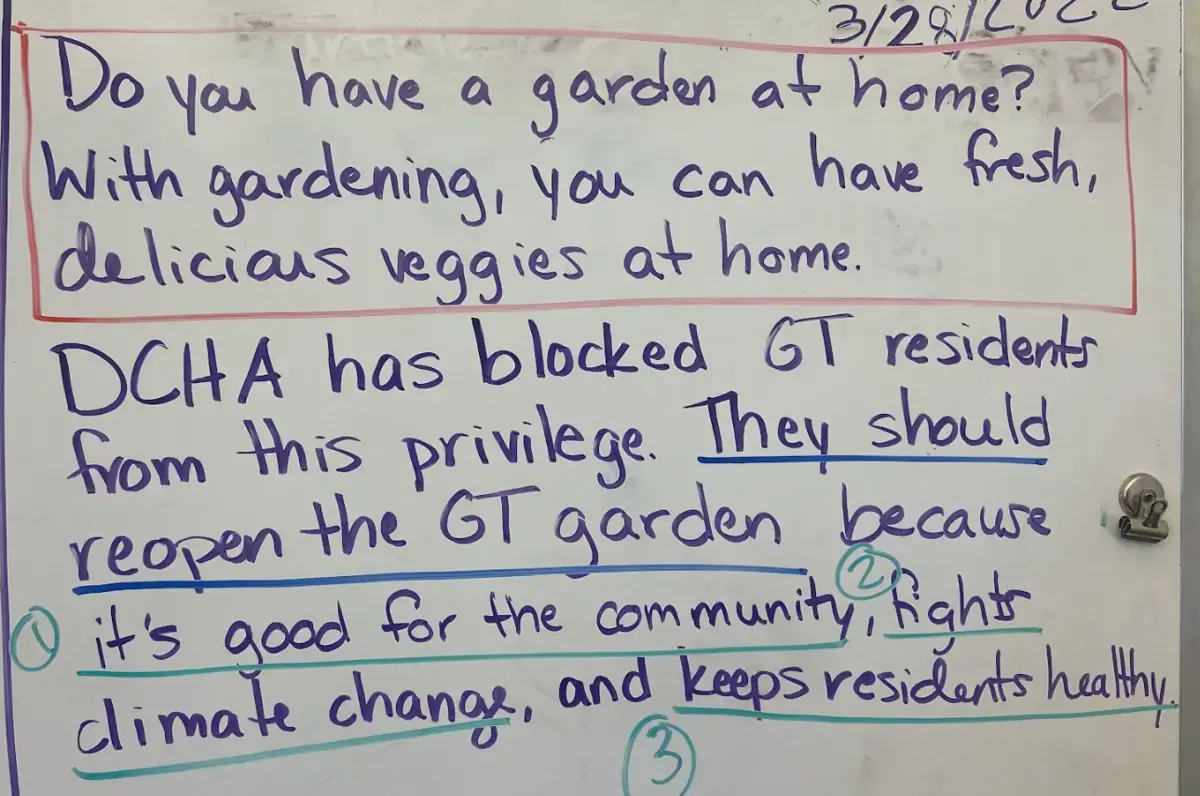 3/28/2022
Do you have a garden at home?
With gardening, you can have fresh,
delicious veggies at home.
DCHA has blocked GT residents
from this privilege. They should
reopen the GT garden because
② 
① it's good for the community, fights
climate change, and keeps residents healthy.
③